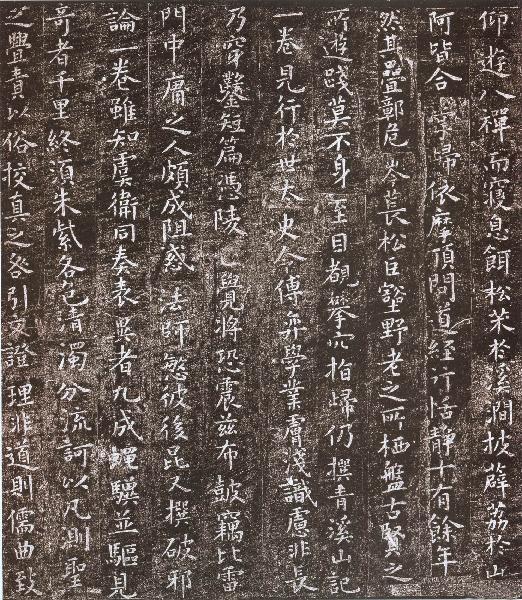 仰遊八禪而寢息餌松茱於溪澗披薜荔於山
阿皆合歸依摩頂問道經行恬靜十有餘年
然其疊鄣危岑萇松巨壑野老之所栖盤古賢之
所遊踐莫不身至目覩攀穴指歸仍撰青溪山記
一卷見行於世太史令傅弈學業膚淺識慮非長
乃穿鑿短篇憑陵覺將恐震茲布鼓竊比雷
門中庸之人頗成阻惑法師慜彼後昆又撰破邪
論一卷雖知虞衛同奏表異者九成蠅驥並驅見
奇者千里終須朱紫各色清濁分流詎以凡測聖
之舋責以俗挍真之咎引文證理非道則儒曲致